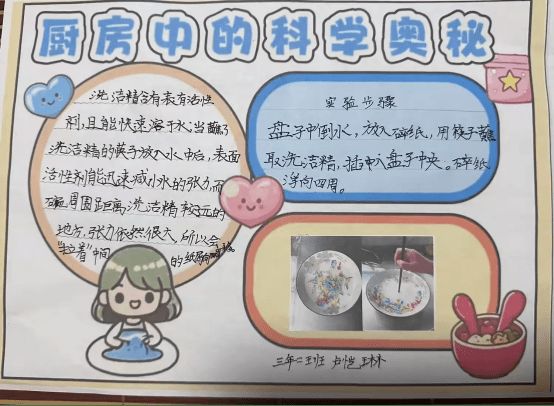 厨房中的科学奥秘
洗洁精含有表有活性
剂,且能快速溶于水,当蘸了
洗洁精的筷子放入水中后,表面
活性剂能迅速减小水的张力而
碗周围距离洗洁精较远的
地方,张力依然很大,所以会
"拉着"中间的纸
实验步骤
盘子中倒水,放入碎纸,用筷子蘸
取洗洁精,插中入盘子中央。碎纸
浮向四周。
三年二班 卢恺琳